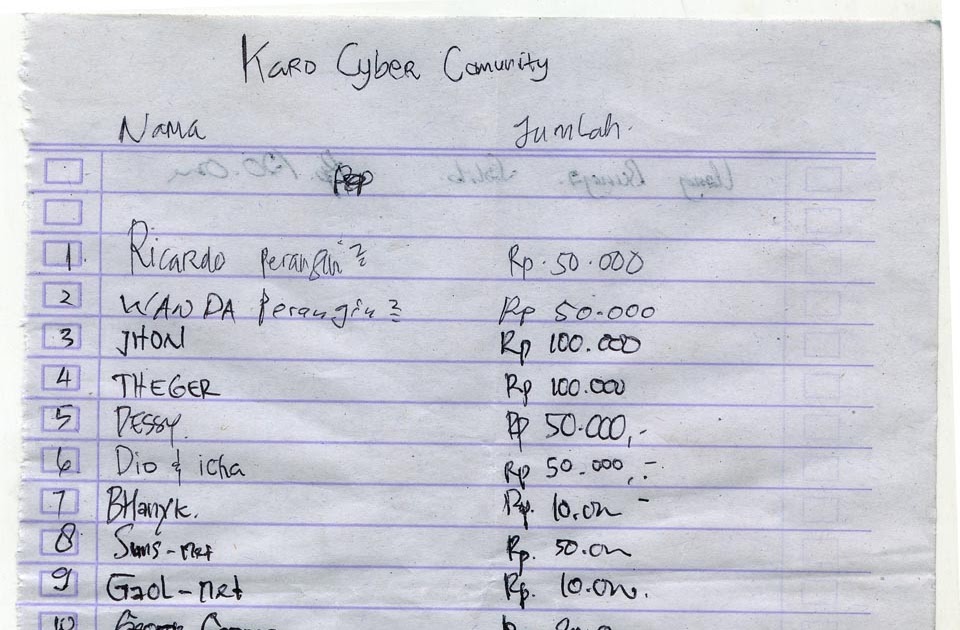 Karo Cyber Comunity
Nama Jumlah.
Rp
1 Ricardo perangin² Rp. 50.000
2 WANDA perangin² Rp 50.000
3 JHON Rp 100.000
4 THEGER Rp 100.000
5 DESSY. Rp 50.000,-
6 Dio & icha Rp 50.000,-
7 BHanyk. Rp. 10.000 -
8 Suns-net Rp. 50.000
9 Gaol-net Rp. 10.000.
10